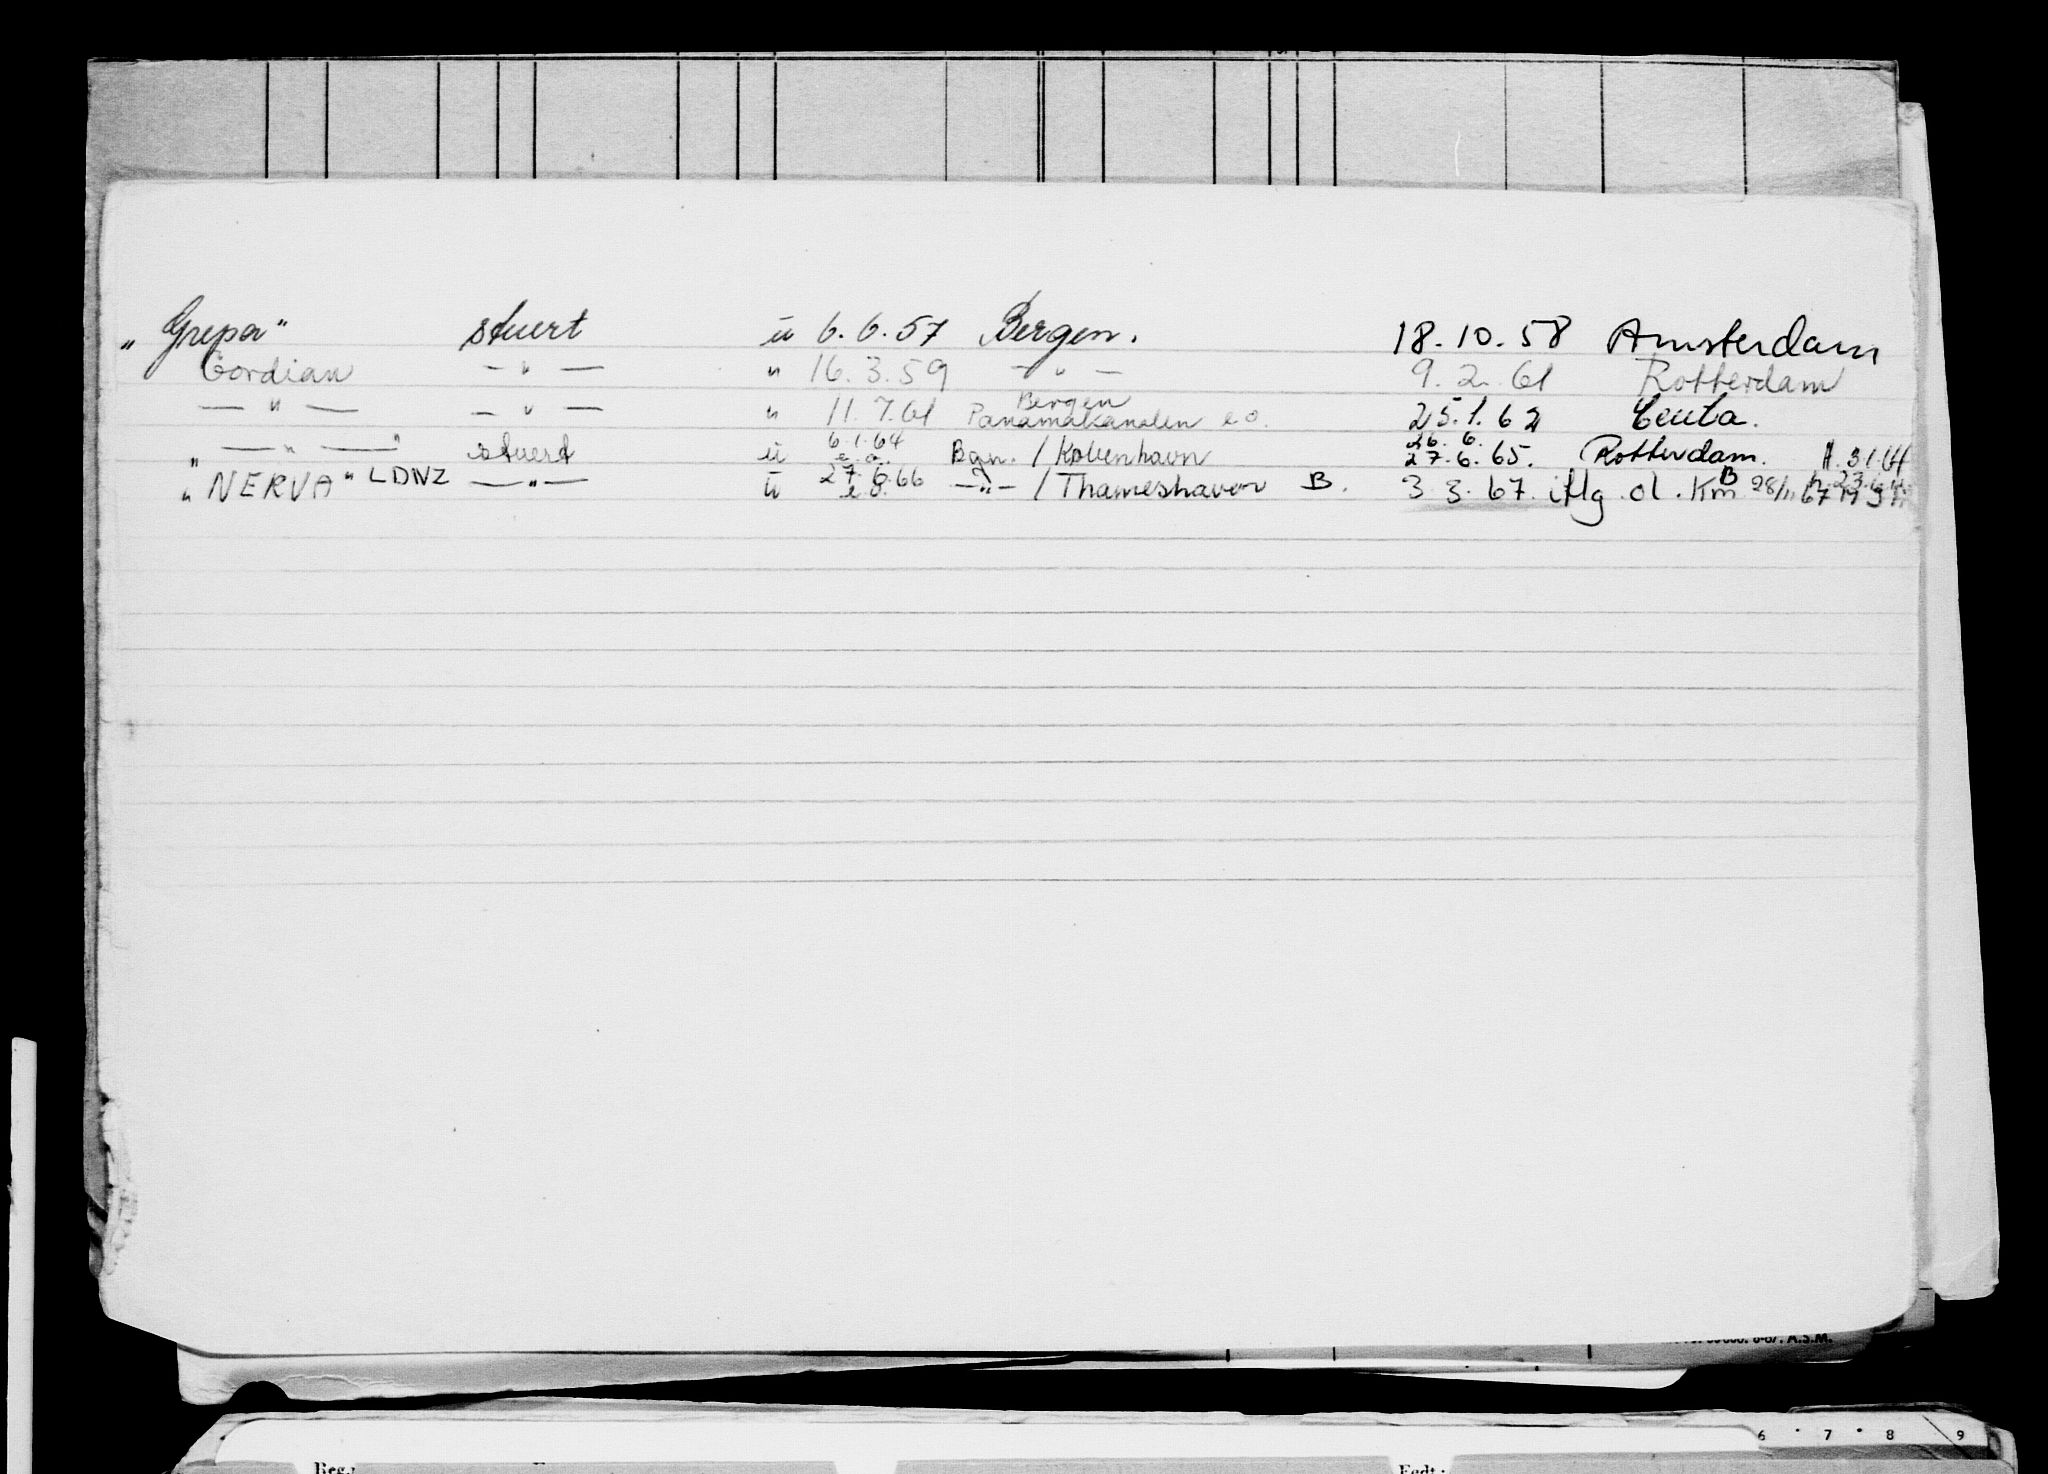 „ Grepa" stuert ü 6.6.57 Bergen. 18.10.58 Amsterdam
Gordian — " — " 16.3.59 — " — 9.2.61 Rotterdam
— " — — " — " 11.7.61 Bergen Panamakanalen e o. 25.1.62 Ceuta.
— " — " stuert ü 6.1.64 e.o. Bgn. / København 26.6. 27.6.65. Rotterdam. A. 3.1.64
„ NERVA " LDNZ — " — ü 27.6.66 e o. — " — / Thameshaven B. 3.3.67. iflg. ol. Km B 28/11 67
No. 60 000. 6-67. A.S.M.
6 • 7 • 8 9
Reg.: Født: